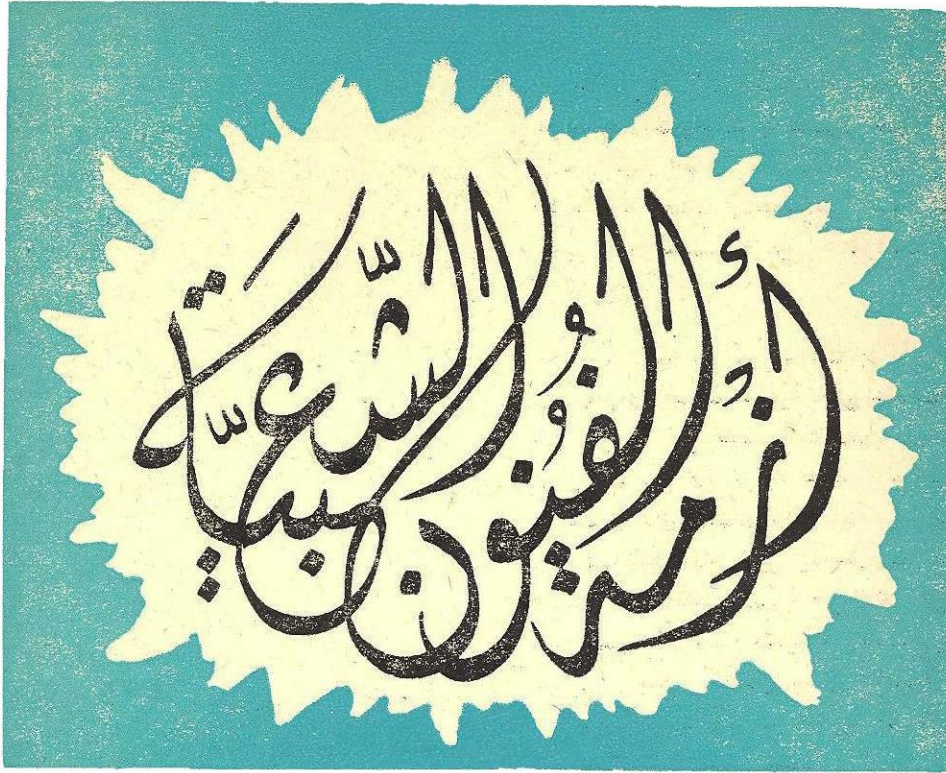 أزمة الفُنُون الشّعبيّة